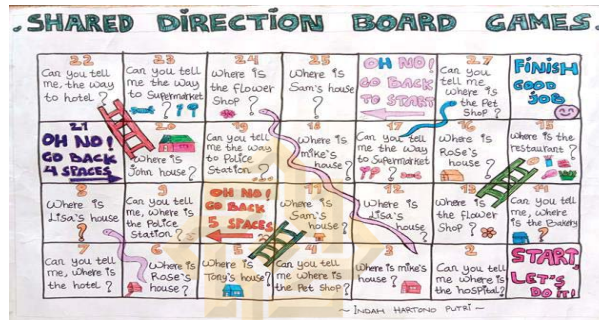 . SHARED DIRECTION BOARD GAMES.
22
Can you tell
me, the way
to hotel ?
23
Can you tell
me the way
to Supermarket
?
24
Where is
the flower
Shop ?
25
Where is
Sam's house
?
OH NO!
GO BACK
TO START
27
Can you
tell me
where is
the Pet
Shop ?
FINISH
GOOD
JOB
21
OH NO!
GO BACK
4 SPACES
20
Where is
John house ?
19
Can you tell
me the way
to Police
Station ?
18
Where is
mike's
house ?
17
Can you tell
me the way
to Supermarket
?
16
Where is
Rose's
house ?
15
Where is the
restaurant ?
8
Where is
Lisa's house
?
9
Can you tell
me, where is
the Police
Station ?
OH NO!
GO BACK
5 SPACES
11
Where is
Sam's
house ?
12
Where is
Lisa's
house ?
13
Where is
the flower
Shop ?
14
Can you tell
me, where
is the Bakery
?
7
Can you tell
me, where is
the hotel ?
6
Where is
Rose's
house ?
5
Where is
Tony's house?
4
Can you tell
me where is
the Pet Shop ?
3
Where is mike's
house ?
2
Can you tell
me where is
the hospital?
START,
LET'S
DO IT!
~ INDAH HARTONO PUTRI ~